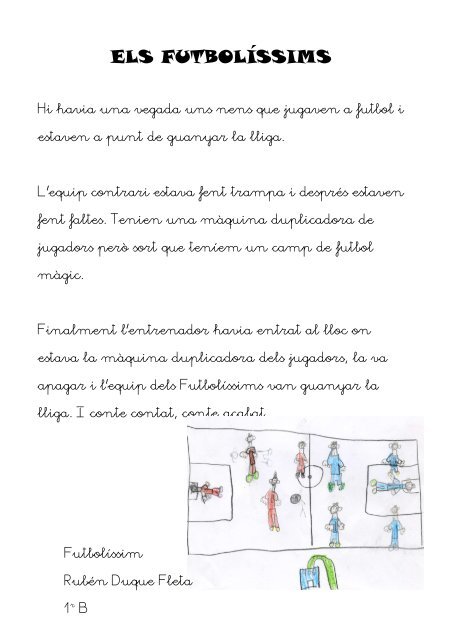 ELS FUTBOLÍSSIMS
Hi havia una vegada uns nens que jugaven a futbol i
estaven a punt de guanyar la lliga.
L'equip contrari estava fent trampa i després estaven
fent faltes. Tenien una màquina duplicadora de
jugadors però sort que teníem un camp de futbol
màgic.
Finalment l'entrenador havia entrat al lloc on
estava la màquina duplicadora dels jugadors, la va
apagar i l'equip dels Futbolíssims van guanyar la
lliga. I conte contat, conte acabat
Futbolíssim
Rubén Duque Fleta
1r B